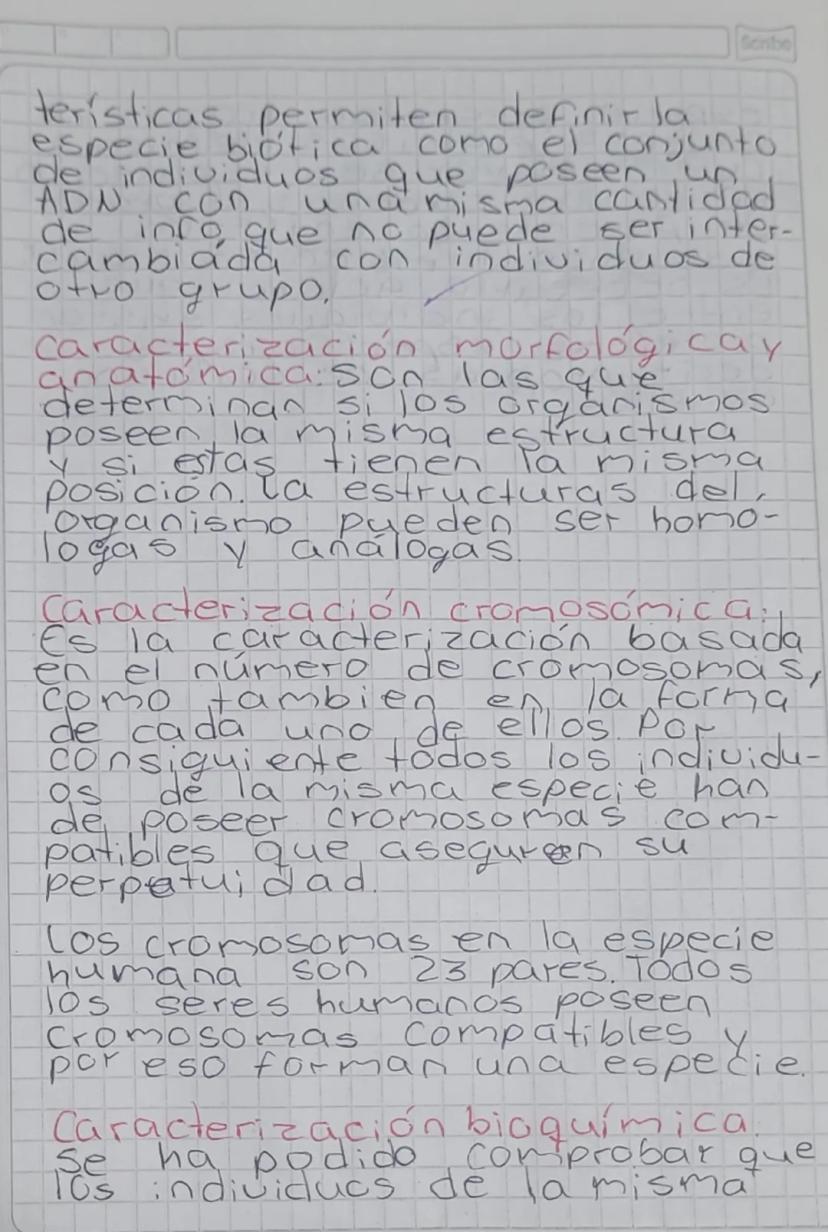 Scribe
terísticas permiten definir la
especie biótica como el conjunto
de individuos que poseen un
ADN con una misma cantidad
de info que no puede ser inter-
cambiada con individuos de
otro grupo.
caracterización morfológica y
anatómica: son las que
determinan si los organismos
poseen la misma estructura
y si estas tienen la misma
posición. La estructuras del
organismo pueden ser homo-
logas y análogas.
Caracterización cromosómica:
Es la caracterización basada
en el número de cromosomas,
como tambien en la forma
de cada uno de ellos. Por
consiguiente todos los individu-
os de la misma especie han
de poseer cromosomas com-
patibles que aseguren su
perpetuidad.
Los cromosomas en la especie
humana son 23 pares. Todos
los seres humanos poseen
cromosomas compatibles y
por eso forman una especie.
Caracterización bioquímica.
Se ha podido comprobar que
los individuos de la misma